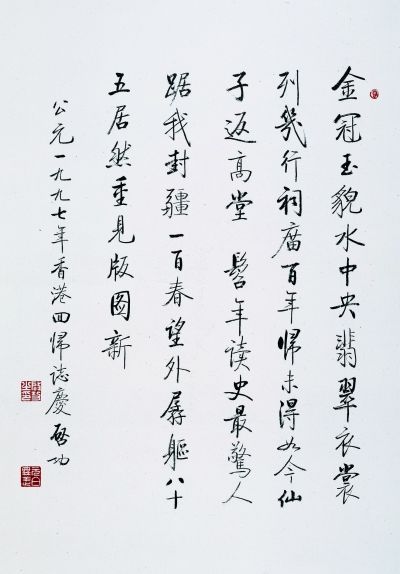 金冠玉貌水中央翡翠衣裳
列几行祠廣百年帰未得如今仙
子返高堂 髫年读史最驚人
踞我封疆一百春望外孱軀八十
五居然重見版圖新
公元一九九七年香港回帰誌慶 啓功